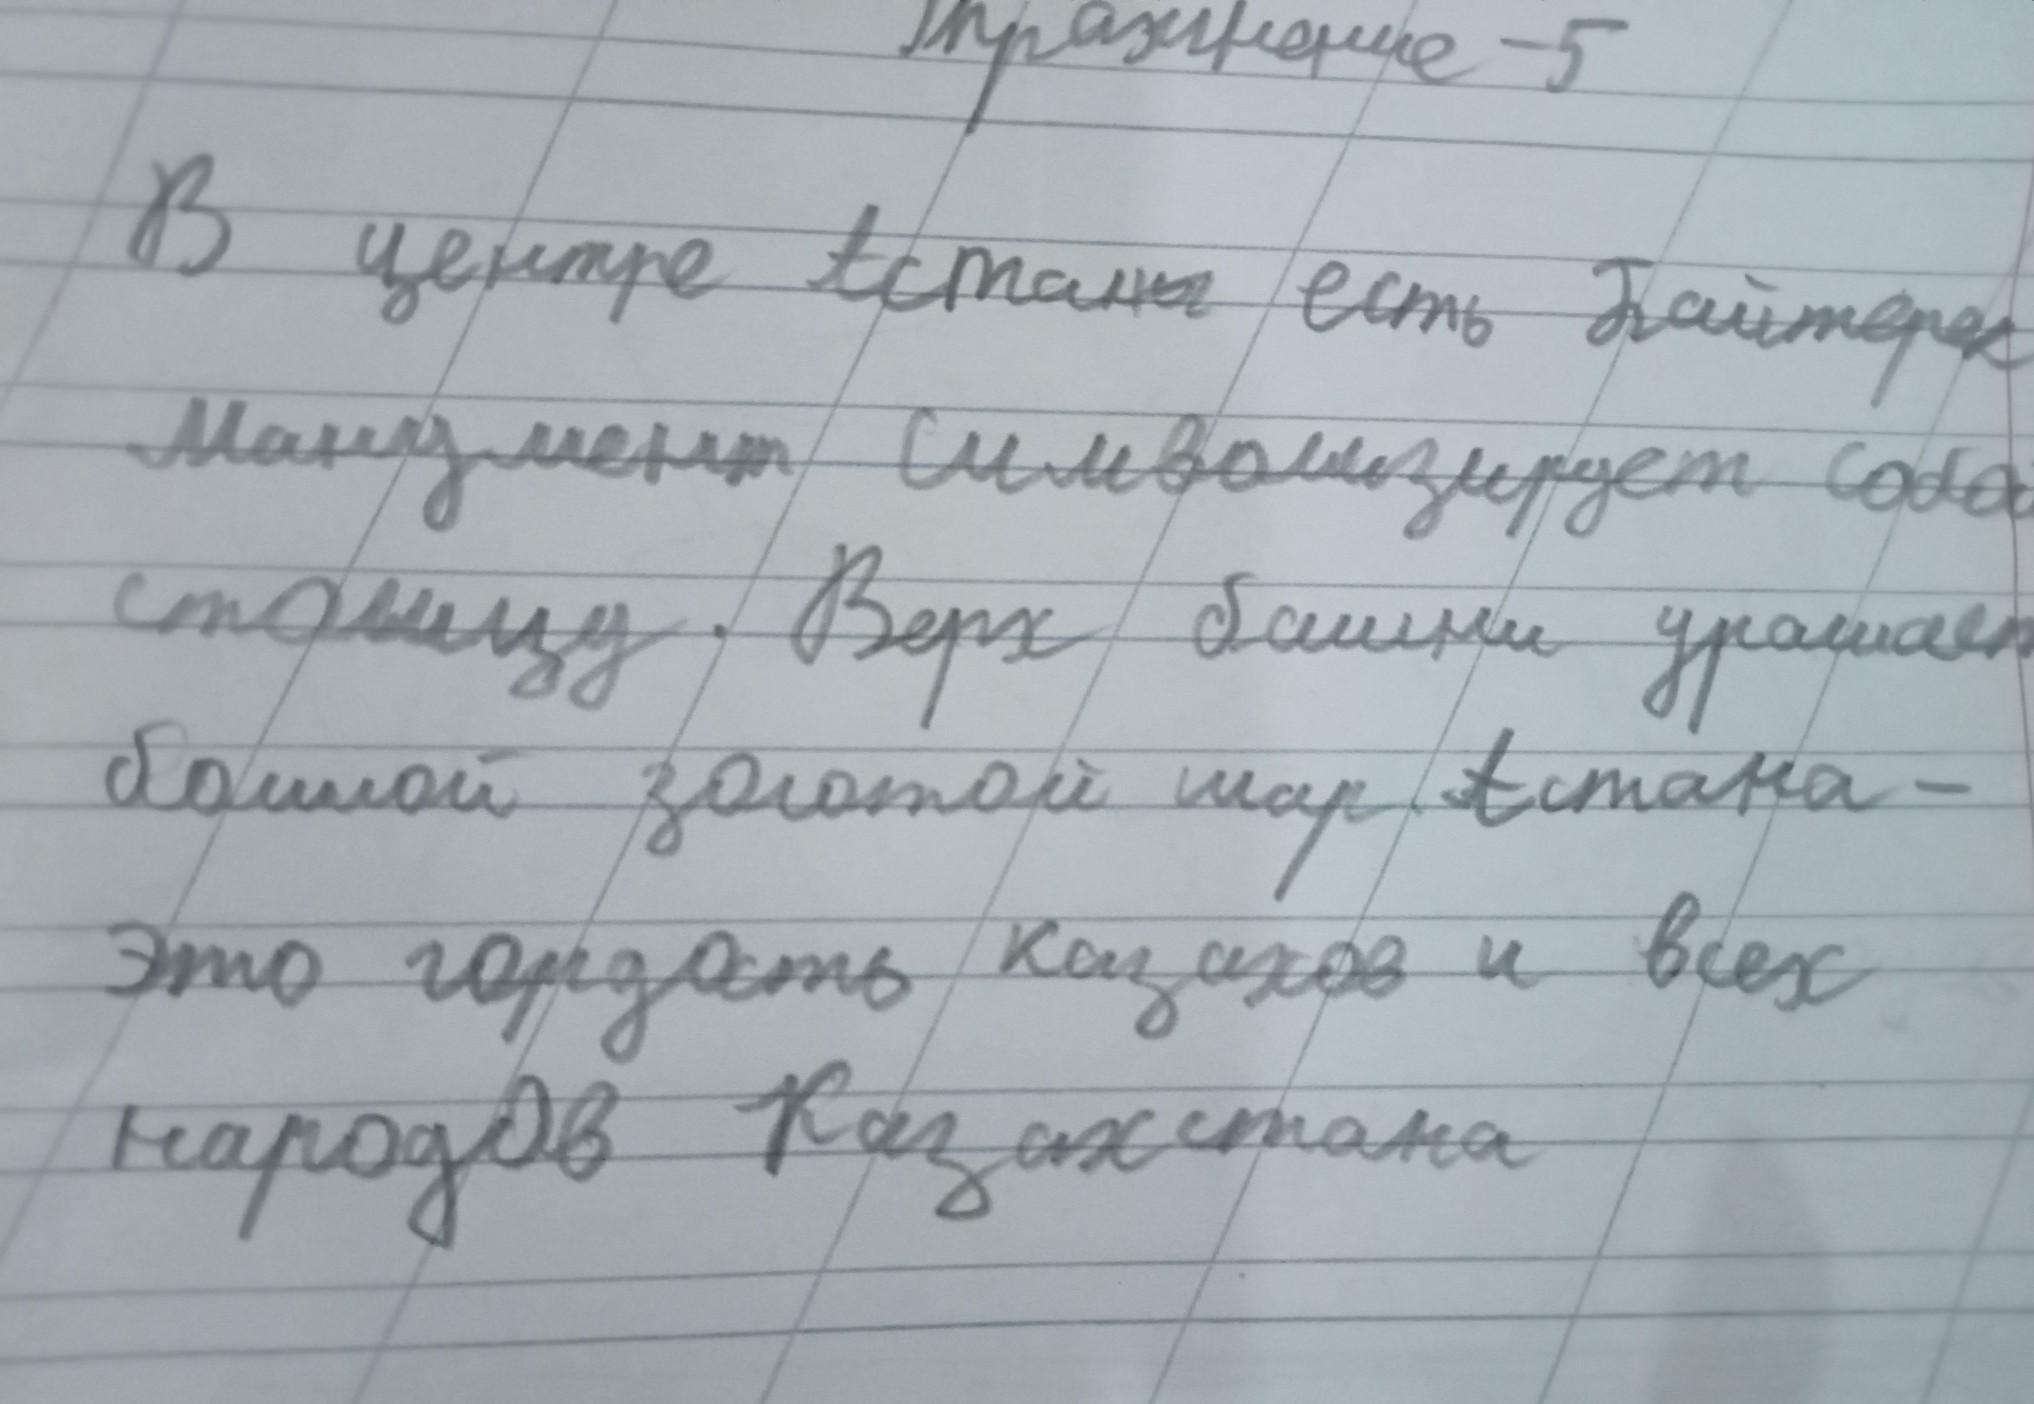 Упражнение -5
В центре Астаны есть Байтерек
Манумент символизирует собой
столицу. Верх башни урашает
бошлой золотой шар. Астана -
это гордость казахов и всех
народов Казахстана